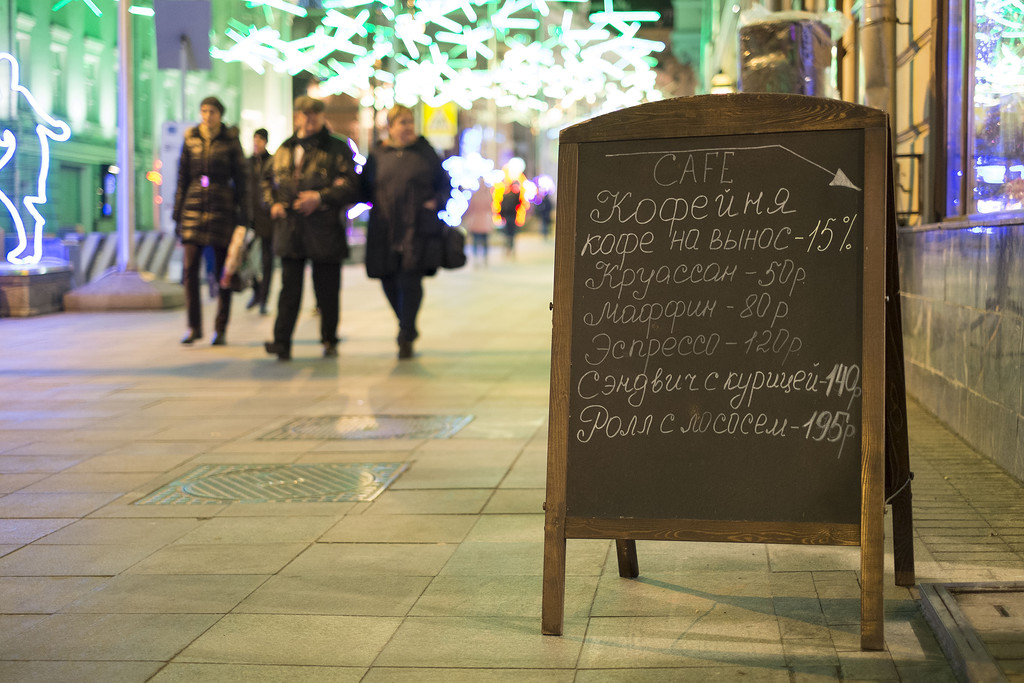 CAFE
Кофейня
кофе на вынос -15%
Круассан - 50р
Маффин - 80р
Эспрессо - 120р
Сэндвич с курицей - 140р
Ролл с лососем - 195р